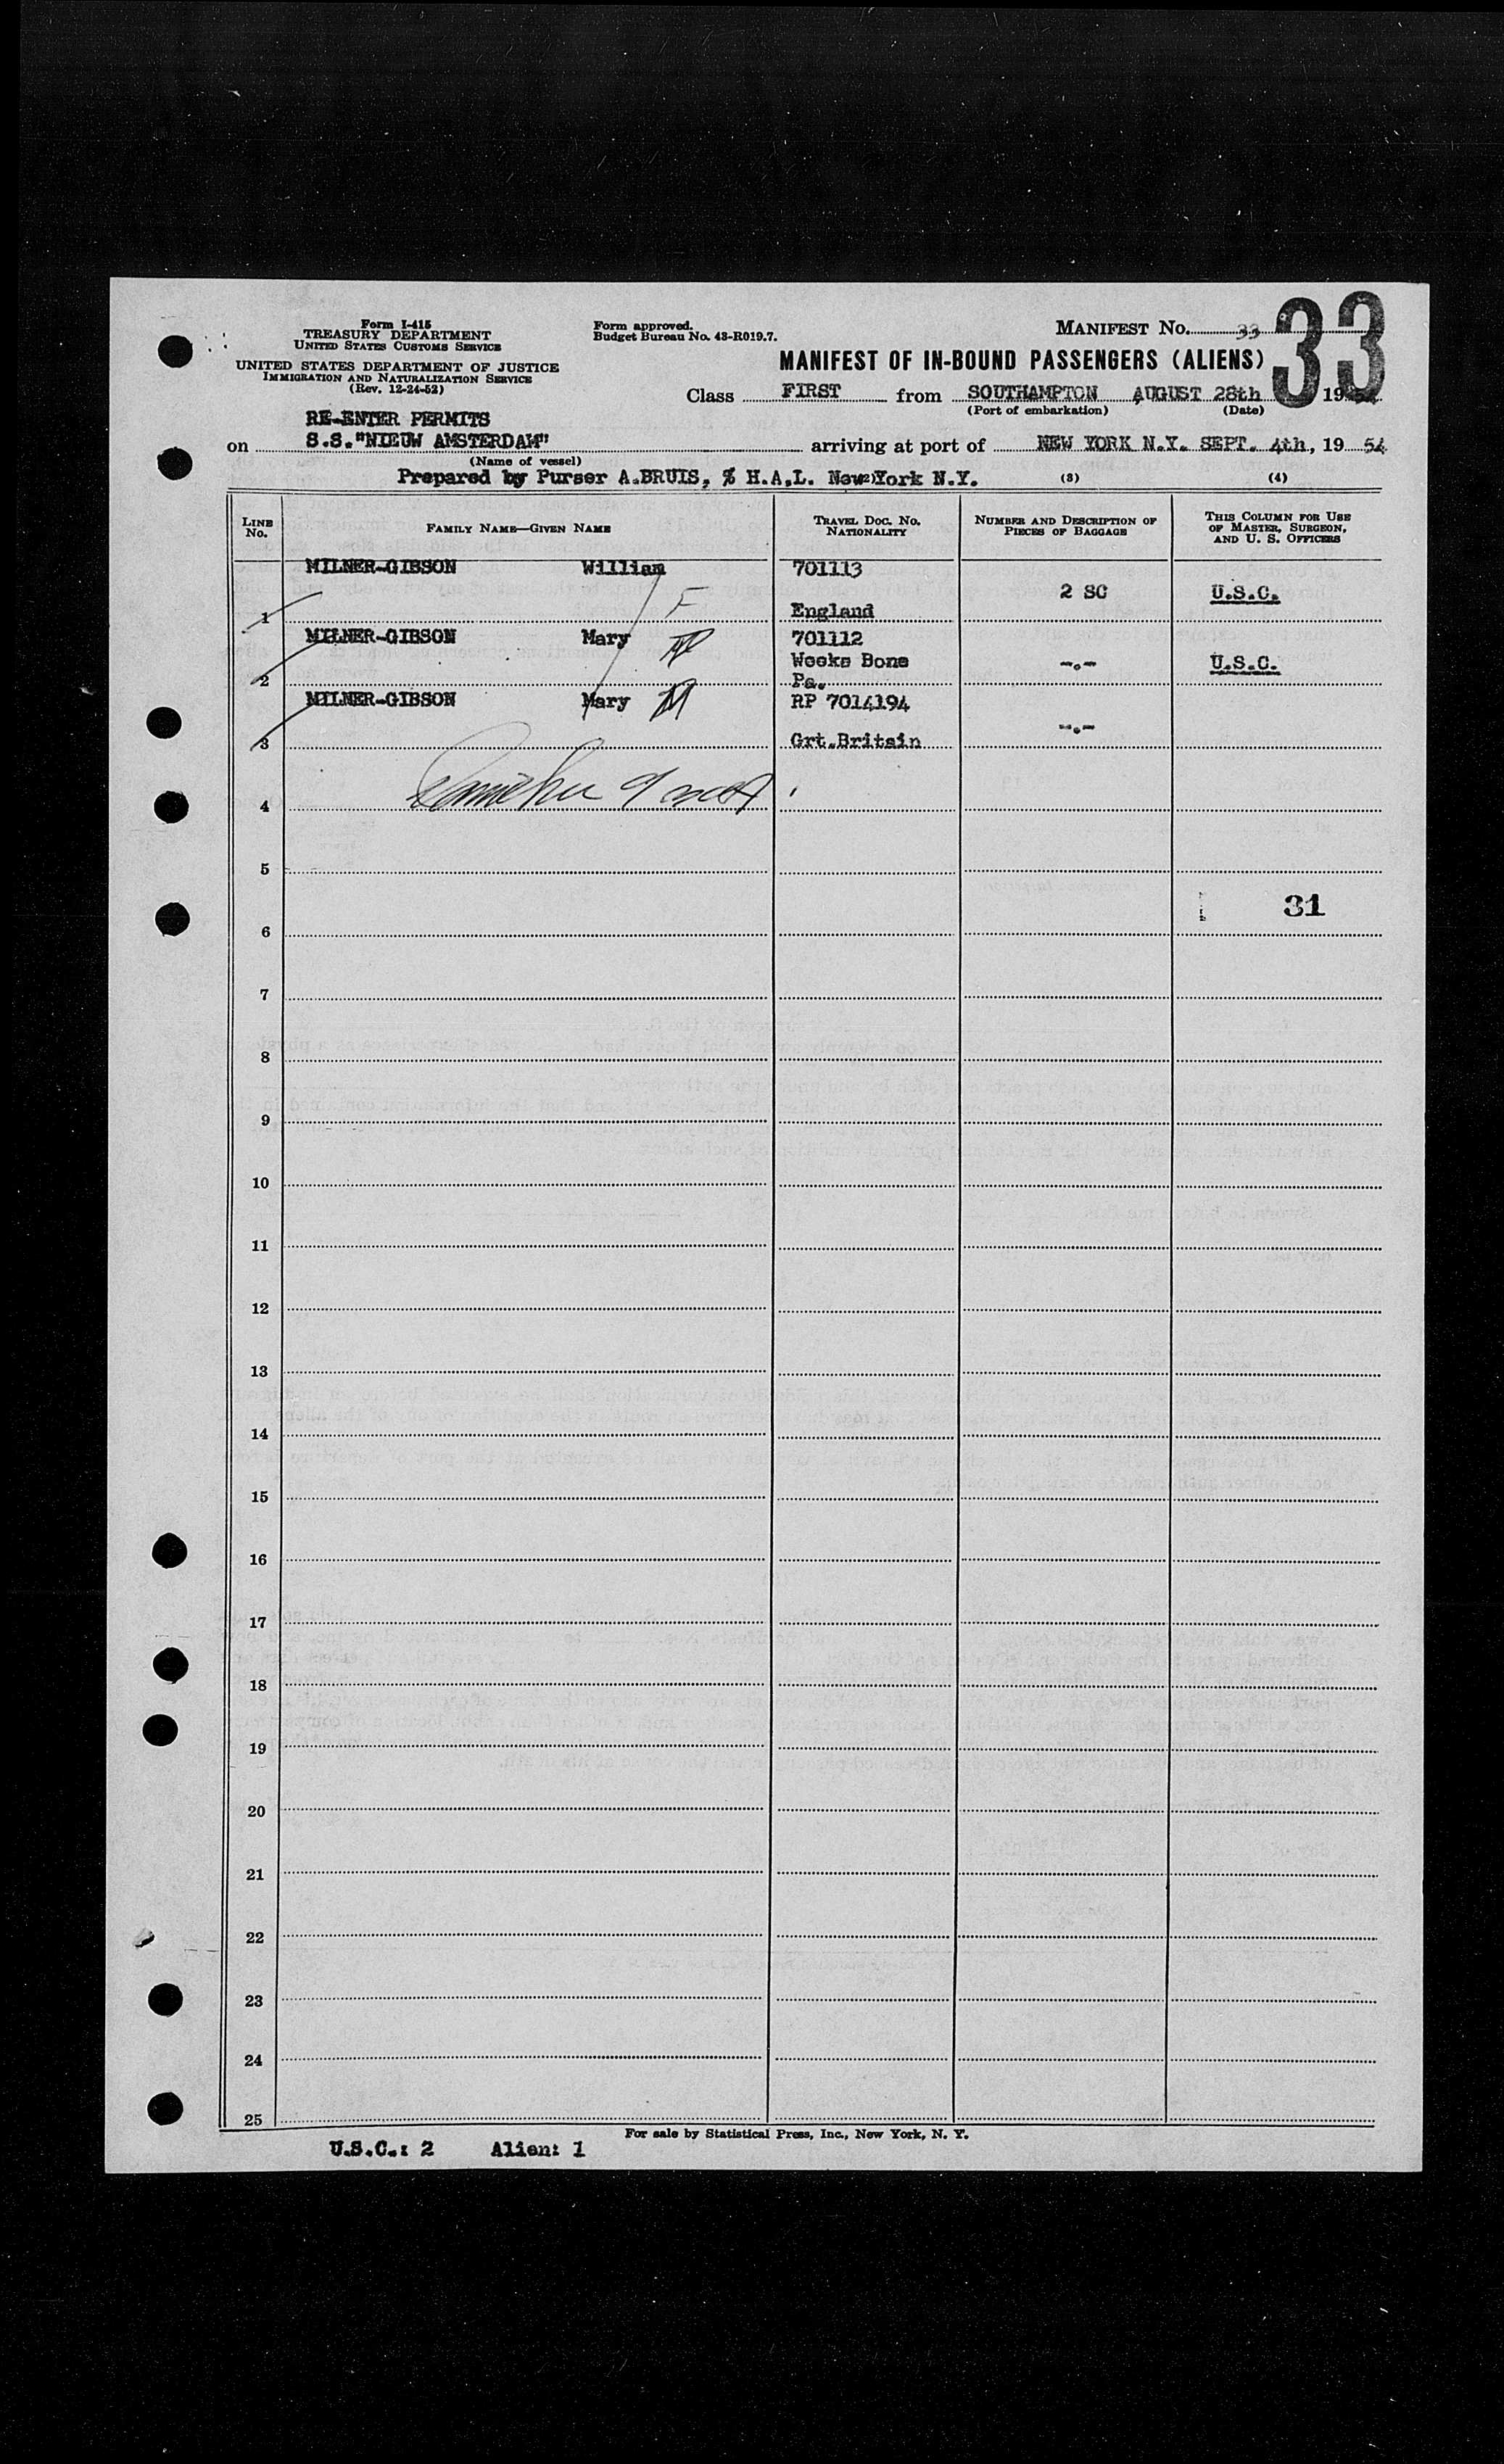 Form I-415
TREASURY DEPARTMENT
UNITED STATES CUSTOMS SERVICE
UNITED STATES DEPARTMENT OF JUSTICE
IMMIGRATION AND NATURALIZATION SERVICE
(Rev. 12-24-52)
Form approved.
Budget Bureau No. 43-R019.7.
MANIFEST No. 33
33
MANIFEST OF IN-BOUND PASSENGERS (ALIENS)
Class FIRST from SOUTHAMPTON AUGUST 28th 1954
(Port of embarkation) (Date)
RE-ENTER PERMITS
on S.S."NIEUW AMSTERDAM" arriving at port of NEW YORK N.Y. SEPT. 4th, 19 54
(Name of vessel)
Prepared by Purser A.BRUIS, % H.A.L. New York N.Y. (2) (3) (4)
LINE No. FAMILY NAME—GIVEN NAME TRAVEL DOC. NO. NATIONALITY NUMBER AND DESCRIPTION OF PIECES OF BAGGAGE THIS COLUMN FOR USE OF MASTER, SURGEON, AND U. S. OFFICERS
MILNER-GIBSON William 701113
F 2 SC U.S.C.
1 England
MILNER-GIBSON Mary 701112
Weeks Bone -.- U.S.C.
2 Pa.
MILNER-GIBSON Mary M RP 7014194
-.-
3 Grt.Britain
4
5
31
6
7
8
9
10
11
12
13
14
15
16
17
18
19
20
21
22
23
24
25
For sale by Statistical Press, Inc., New York, N. Y.
U.S.C.: 2 Alien: 1